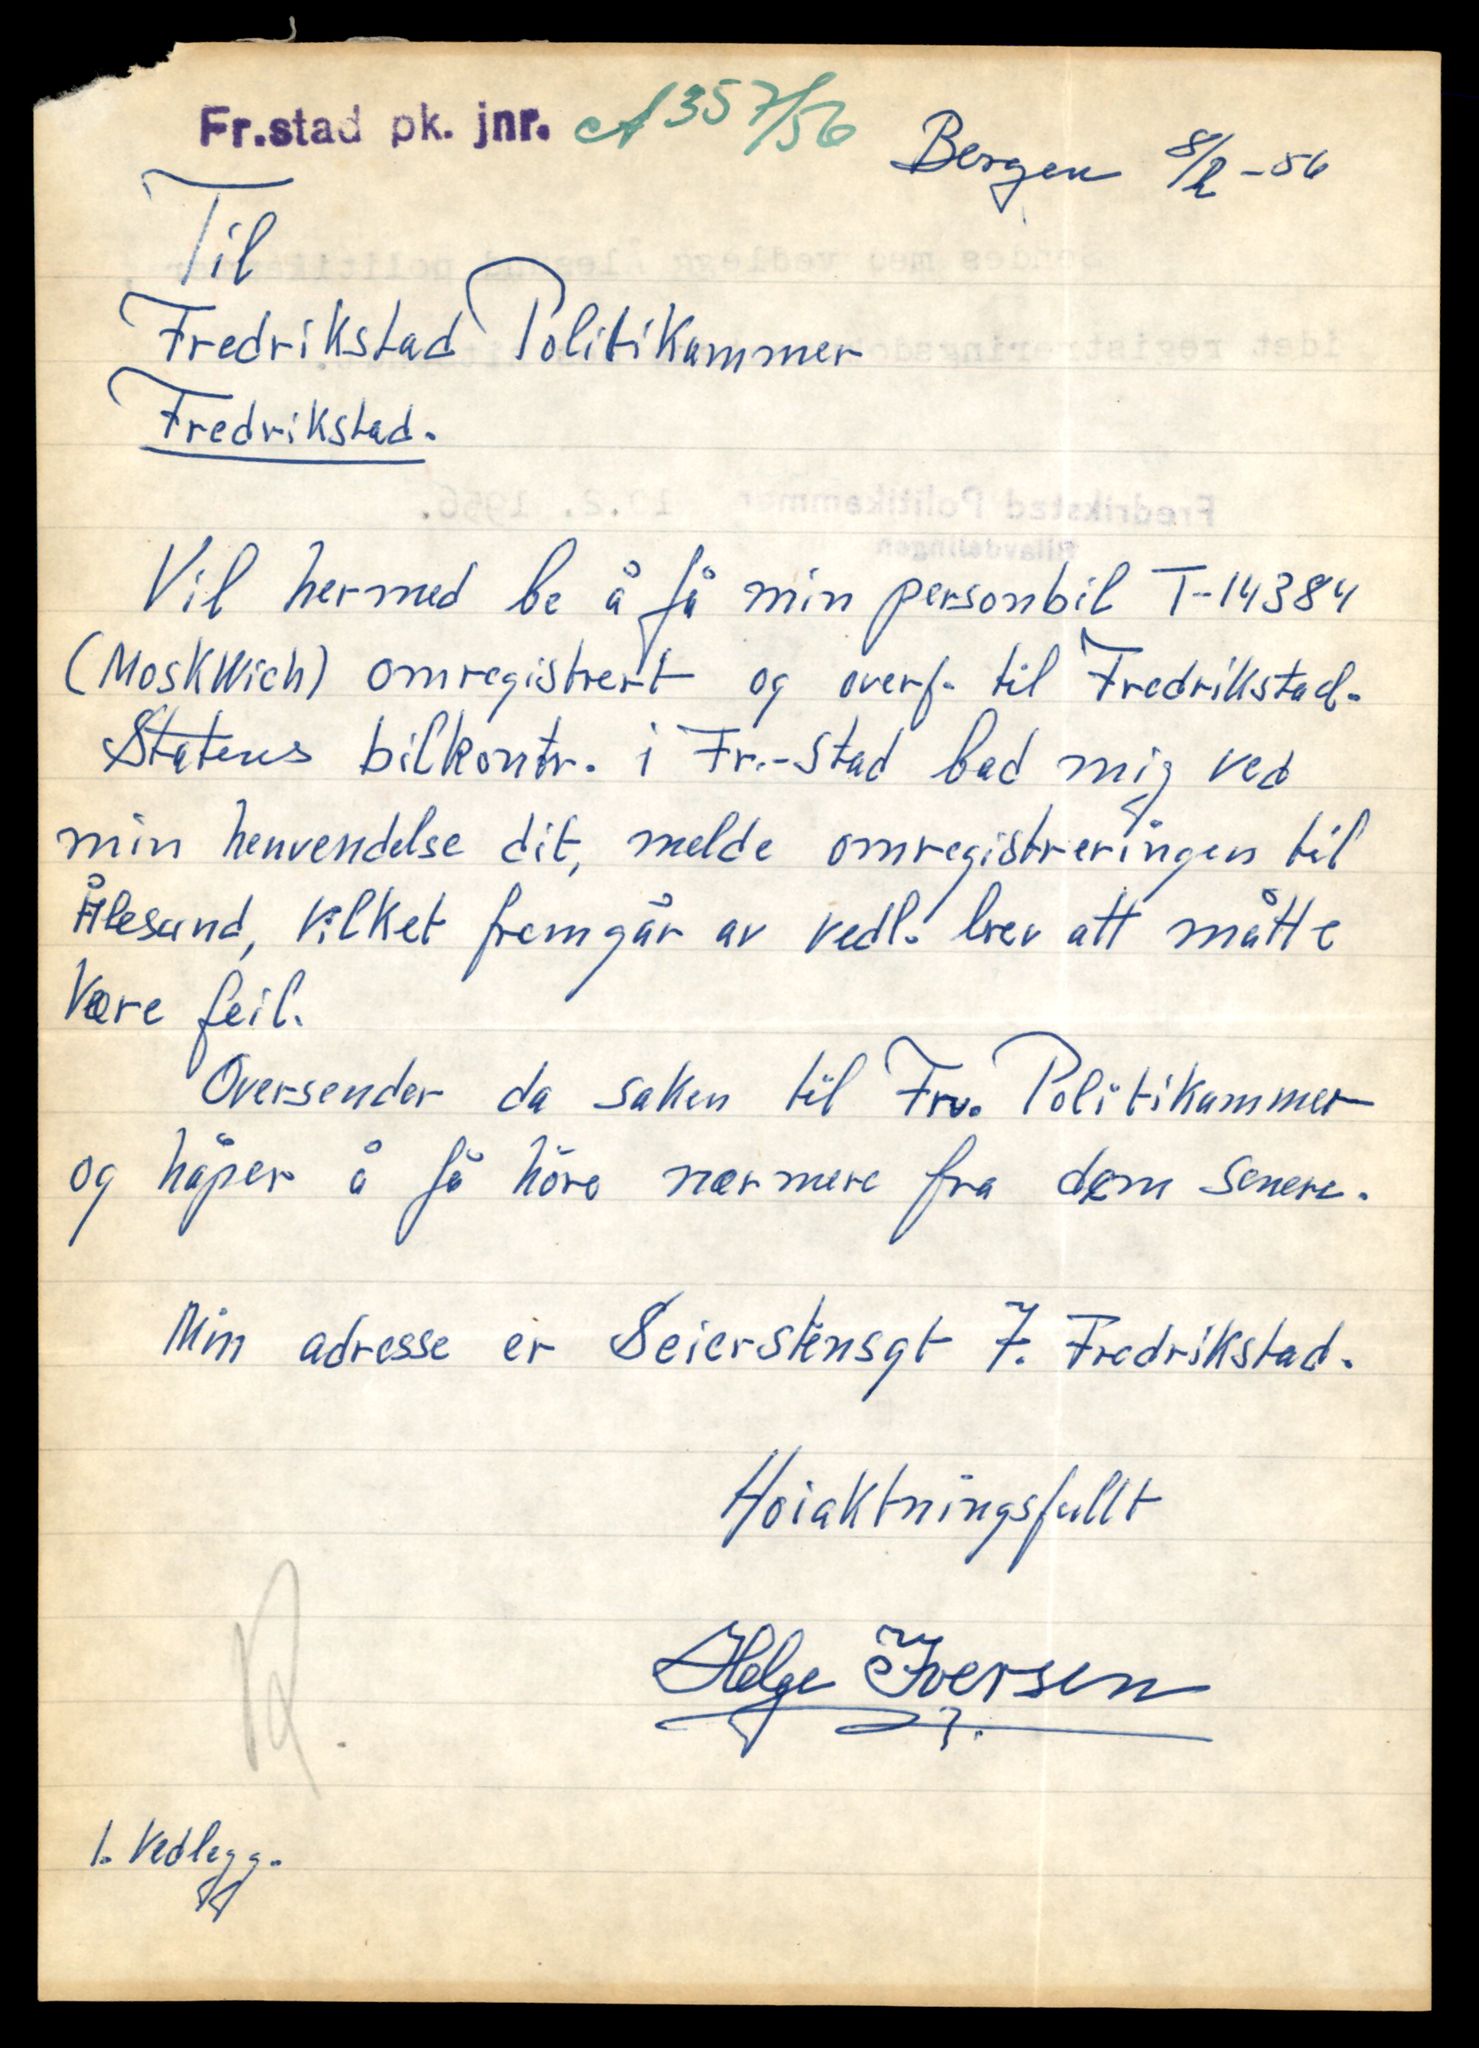 Fr.stad pk. jnr. A 357/56
Bergen 8/2 - 56
Til
Fredrikstad Politikammer
Fredrikstad.
Vil hermed be å få min personbil T-14384
(Moskwich) omregistrert og overf. til Fredrikstad.
Statens bilkontr. i Fr.-stad bad mig ved
min henvendelse dit, melde omregistreringen til
Ålesund, vilket fremgår av vedl. brev att måtte
være feil.
Oversender da saken til Frv. Politikammer
og håper å få höre nærmere fra dem senere.
Min adresse er Seierstensgt 7. Fredrikstad.
Hoiaktningsfullt
Helge Iversen
1. Vedlegg.